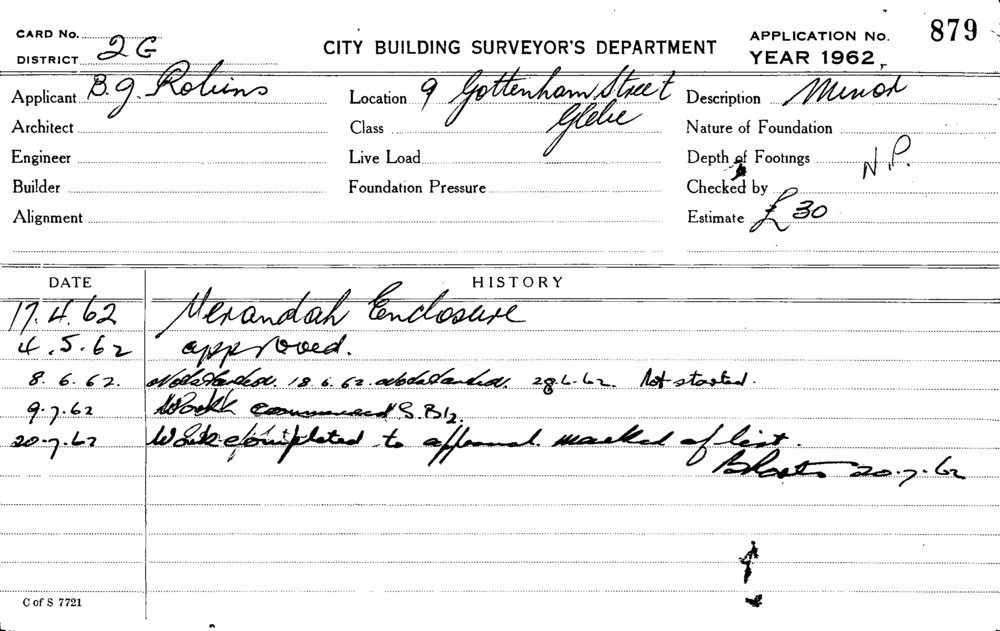 CARD No.
DISTRICT 2G
CITY BUILDING SURVEYOR'S DEPARTMENT
APPLICATION No. 879
YEAR 1962
Applicant B. G. Robins
Location 9 Gottenham Street
Glebe
Description Minor
Architect
Class
Nature of Foundation
Engineer
Live Load
Depth of Footings N.P.
Builder
Foundation Pressure
Checked by
Alignment
Estimate £30
DATE HISTORY
17.4.62 Verandah Enclosure
4.5.62 approved.
8.6.62. Not started. 18.6.62. Not started. 28.6.62. Not started.
9.7.62 Work commenced
20.7.62 Work completed to approval marked of list.
20.7.62
C of S 7721